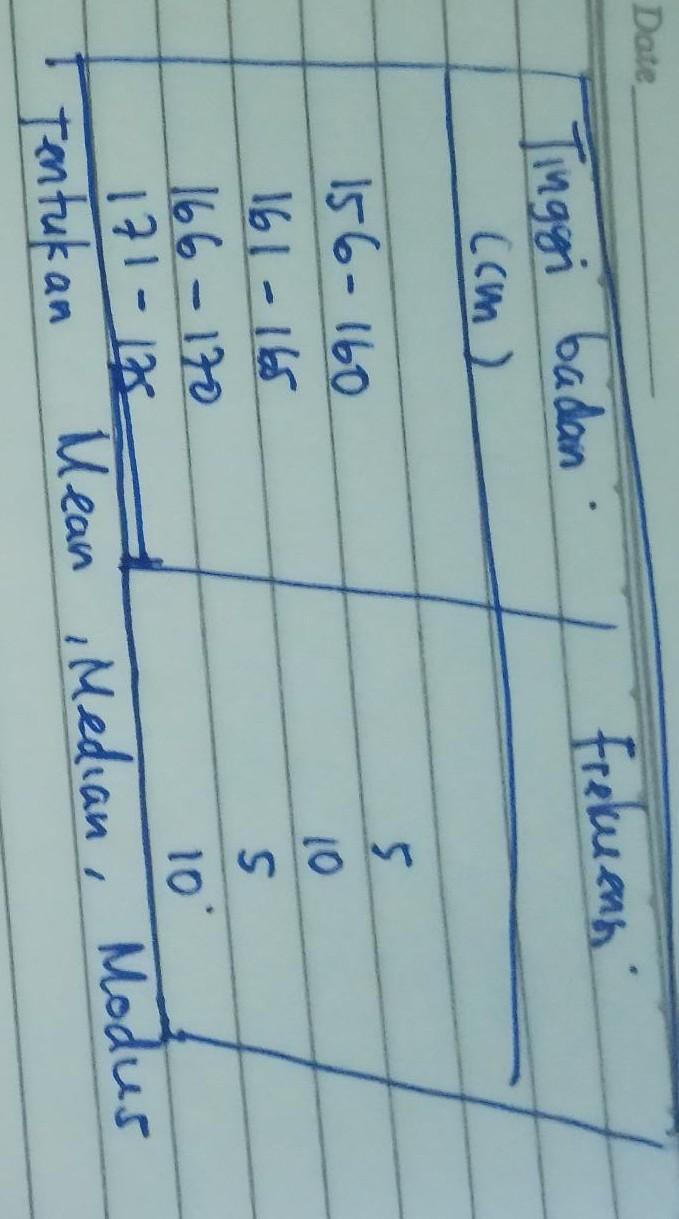 Date
Tinggi badan frekuensi
(cm)
156 - 160 5
161 - 165 10
166 - 170 5
171 - 175 10
Tentukan Mean, Median, Modus